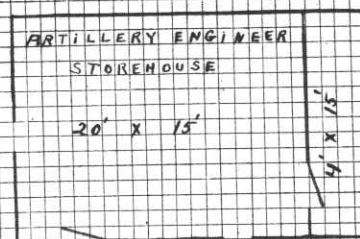 ARTiLLERY ENGiNEER
STOREHOUSE
20' x 15'
4' x 15'